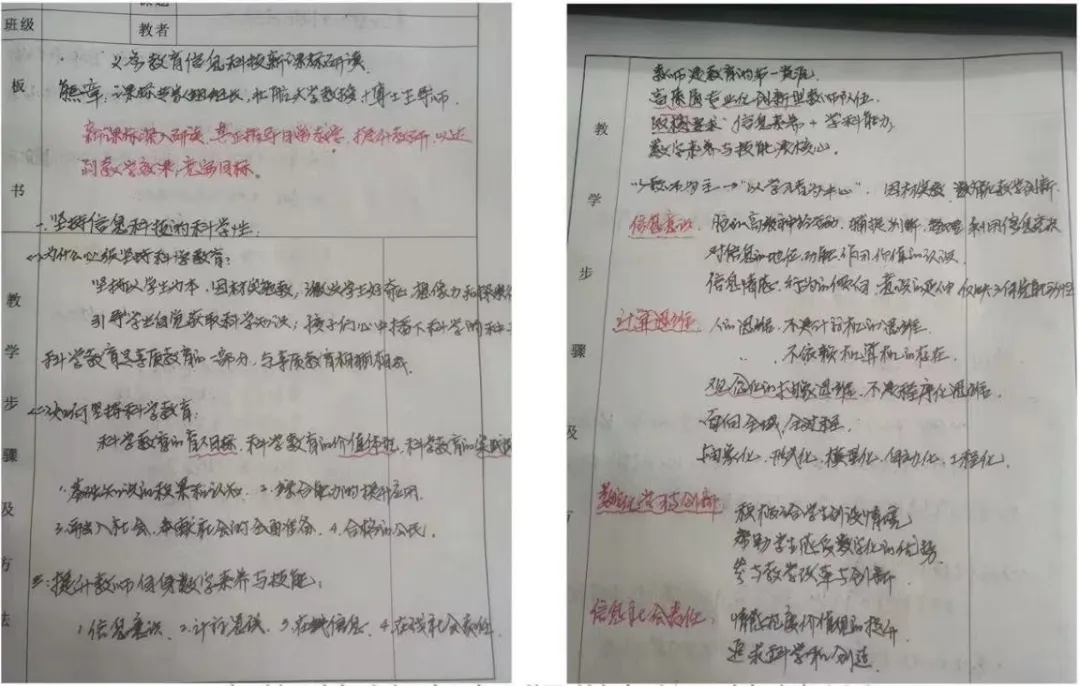 班级
教者
板书
教学步骤及方法
义务教育信息科技新课标研读
熊璋:课标专家组组长,北航大学教授,博士生导师.
新课标深入研读,真正指导日常教学,提升教研,以达
到教学效果,育人目标。
一.坚持信息科技的科学性:
为什么必须坚持科学教育:
坚持以学生为本,因材施教,激发学生好奇心 想像力和探求欲
引导学生自觉获取科学知识;孩子们心中播下科学的种子
科学教育是素质教育的一部分,与素质教育相辅相成.
如何坚持科学教育:
科学教育的育人目标,科学教育的价值体现,科学教育的实践
1.基础知识的积累和认知. 2.综合能力的提升应用.
3.融入社会,奉献社会的全面准备. 4.合格的公民.
二:提升教师自身数字素养与技能:
1.信息意识. 2.计算思维. 3. 4.信息社会责任.
教学步骤及方
教师是教育的第一资源
高质量专业化创新型教师队伍.
信息素养+学科能力
数字素养与技能是核心.
以教师为主→"以学习者为中心". 因材施教,
信息意识. 脑的高级神经活动,捕捉 判断,整理 利用信息
对信息的地位,功能,作用,价值的认识.
计算思维 人的思维,不是计算机的思维.
不依赖计算机的存在.
观念化的抽象思维,不是程序化思维.
面向全域,全过程.
抽象化,形式化,模型化,自动化,工程化.
数字化学习与创新 积极配合学生创设情境
帮助学生感受数字化的优势
参与教学改革与创新
信息社会责任. 情感态度价值观的提升.
追求科学和创造.